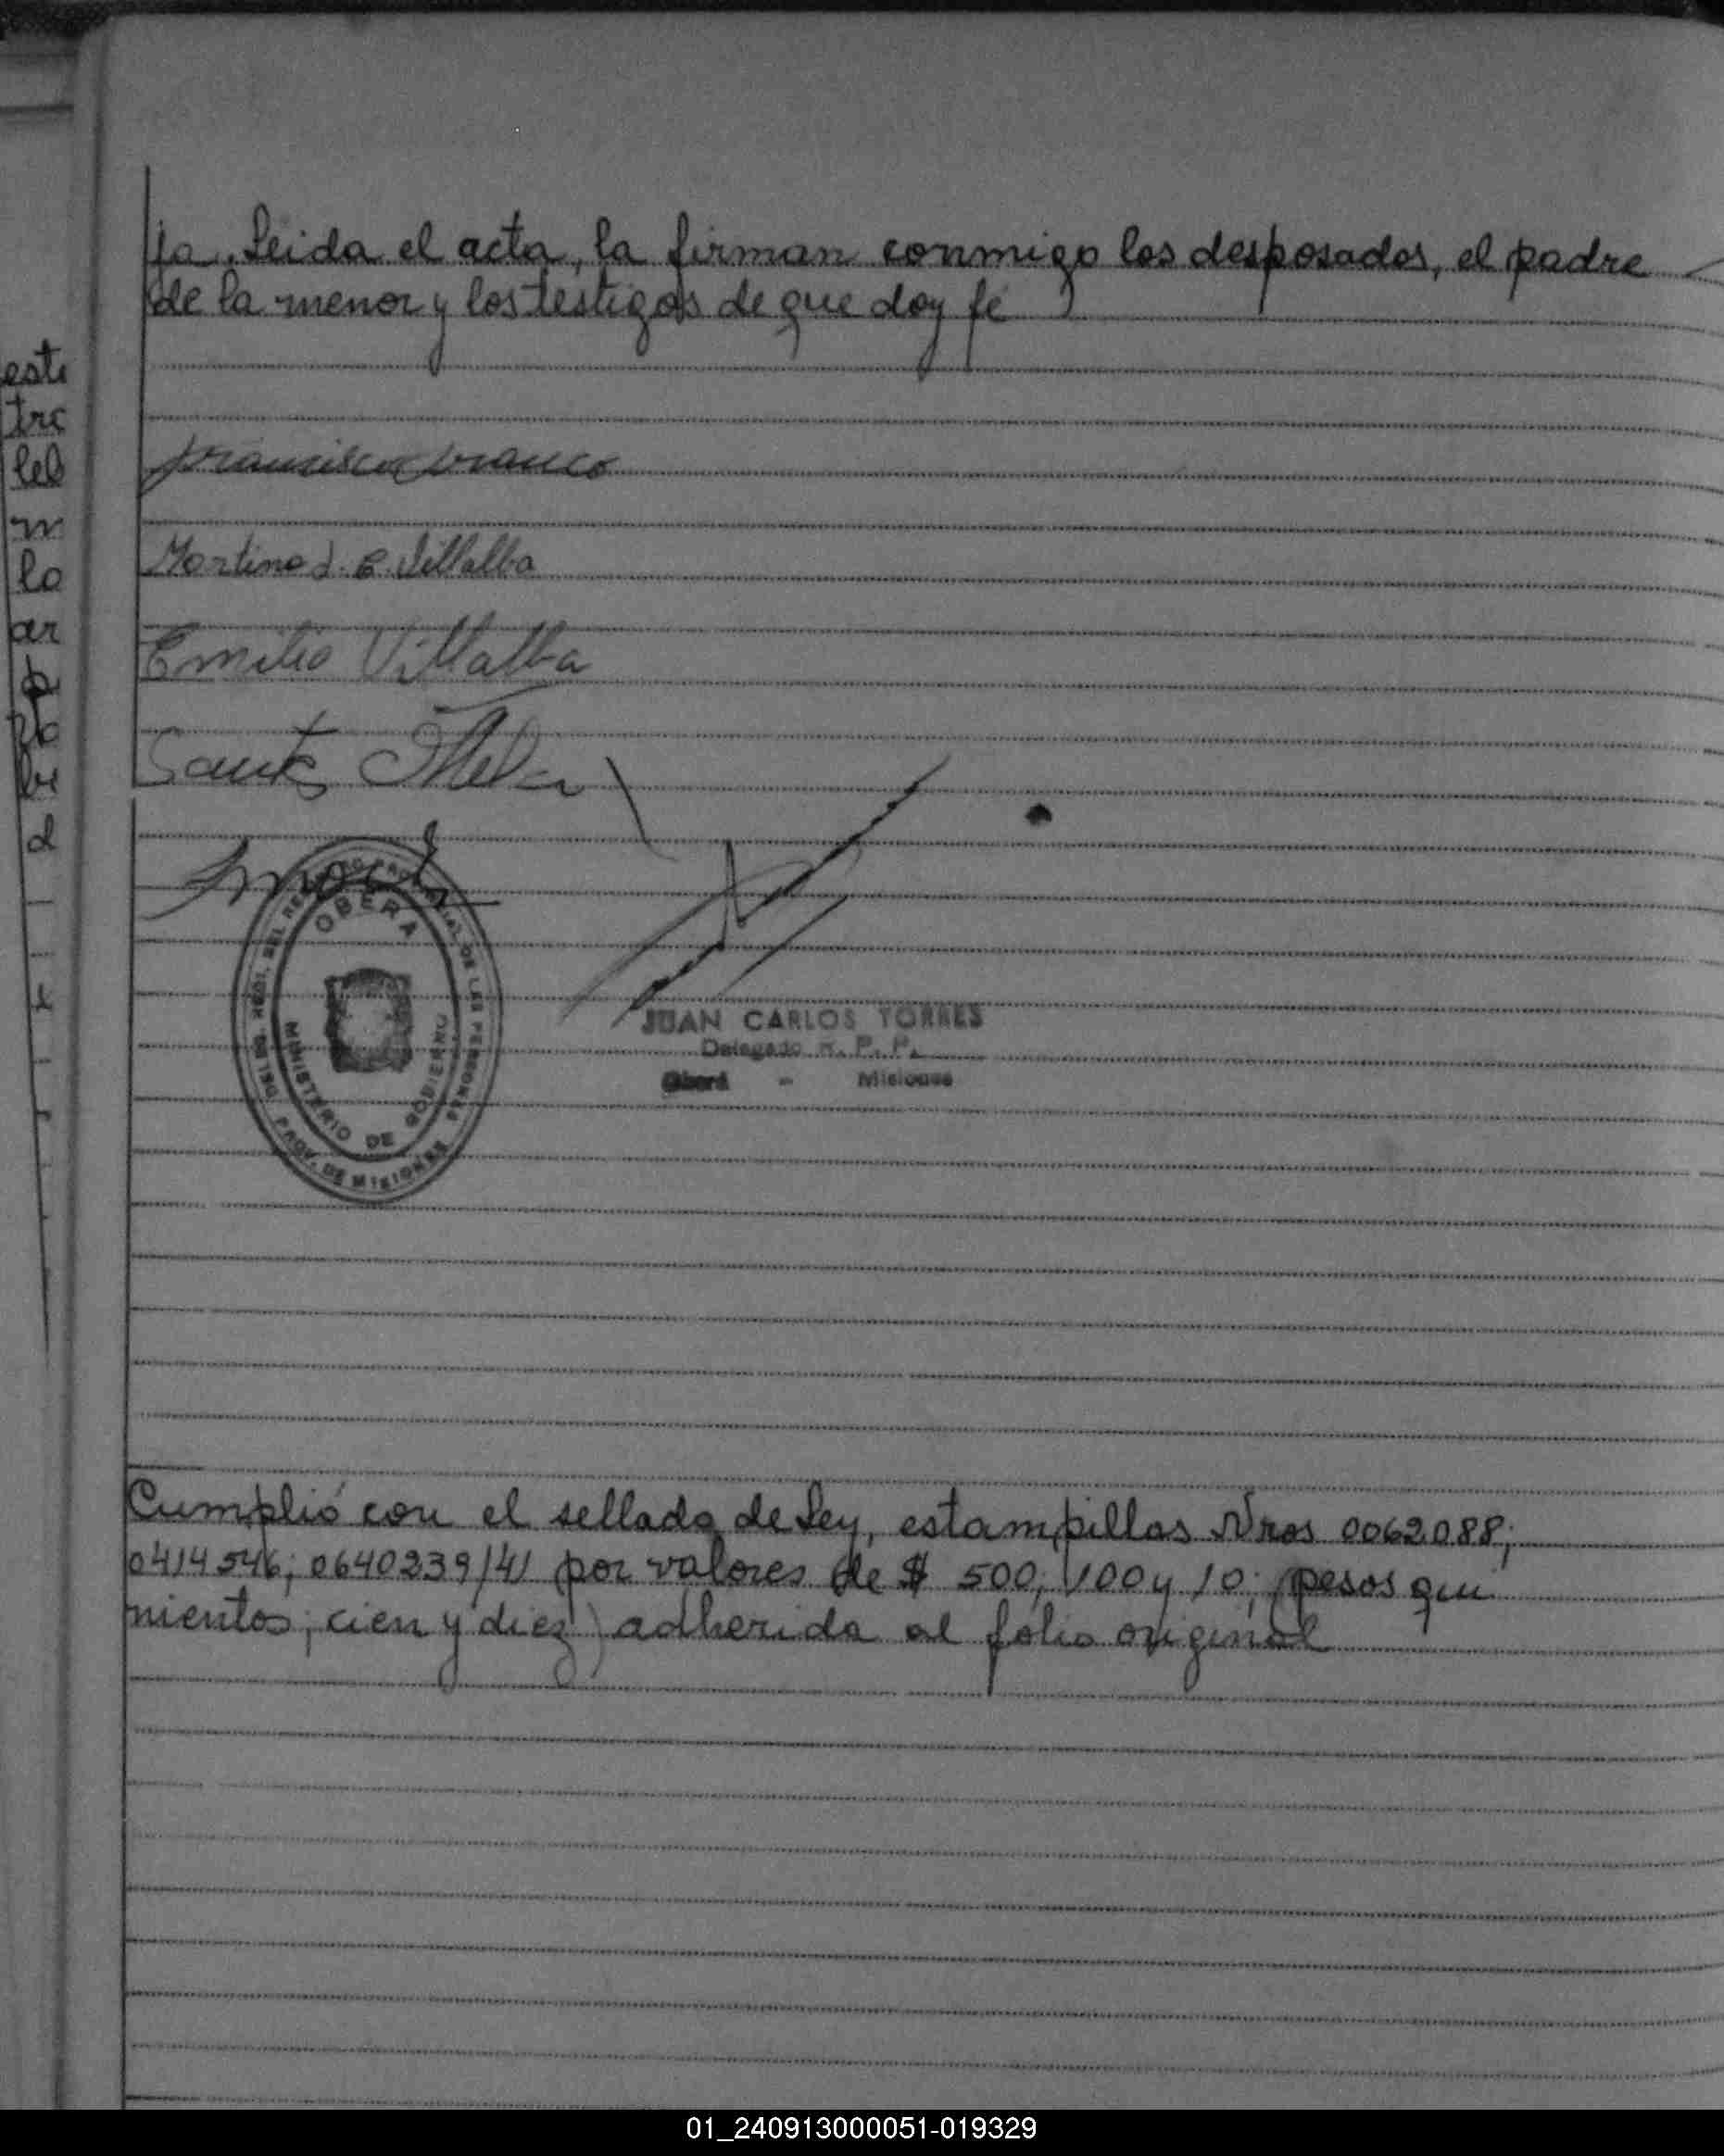 ja. Leida el acta, la firman conmigo los desposados, el padre
de la menor y los testigos de que doy fé
Fransisco franco
Martina d. C. Villalba
Emilio Villalba
OBERA
MINISTERIO DE GOBIERNO
PROV. DE MISIONES
DE LAS PERSONAS
JUAN CARLOS TORRES
Delegado R. P. P.
Oberá - Misiones
Cumplió con el sellado de Ley, estampillas Nros 0062088;
0414546; 0640239/41 por valores de $ 500; 100 y 10; (pesos qui
nientos; cien y diez) adherida al folio original
este
tre
leb
m
lo
ar
p
d
01_240913000051-019329